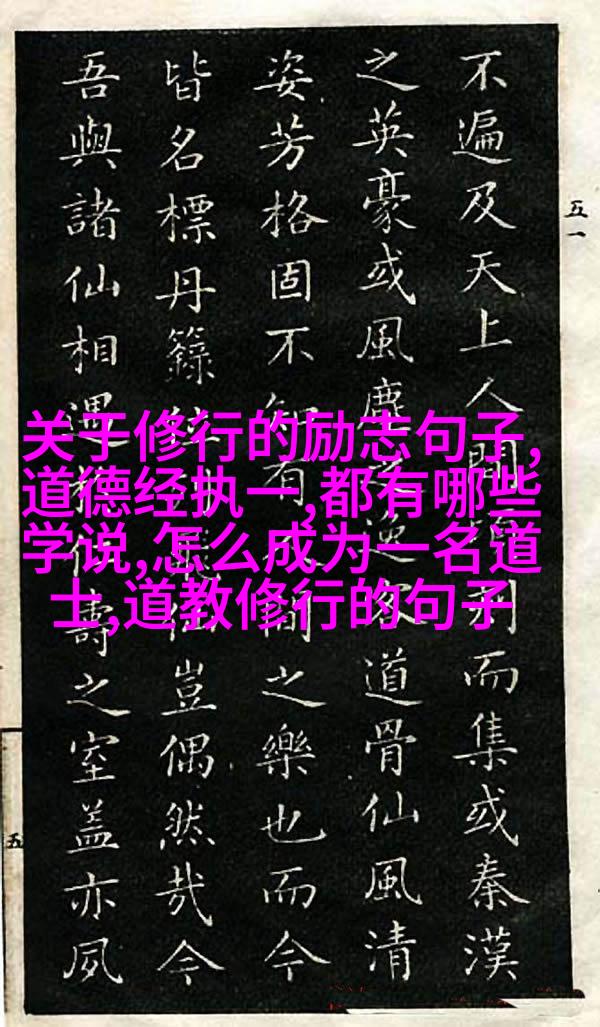 关于修行的励志句子,
道德经执一,都有哪些
学说,怎么成为一名道
士,道教修行的句子
五一
不遍及天上人間列而集或秦漢
之英豪或風塵逸道骨仙風清
姿芳格固不知有人間之樂也而今
皆名標丹籙豈偶然哉今
吾與諸仙相遇於仙壽之室蓋亦夙
五